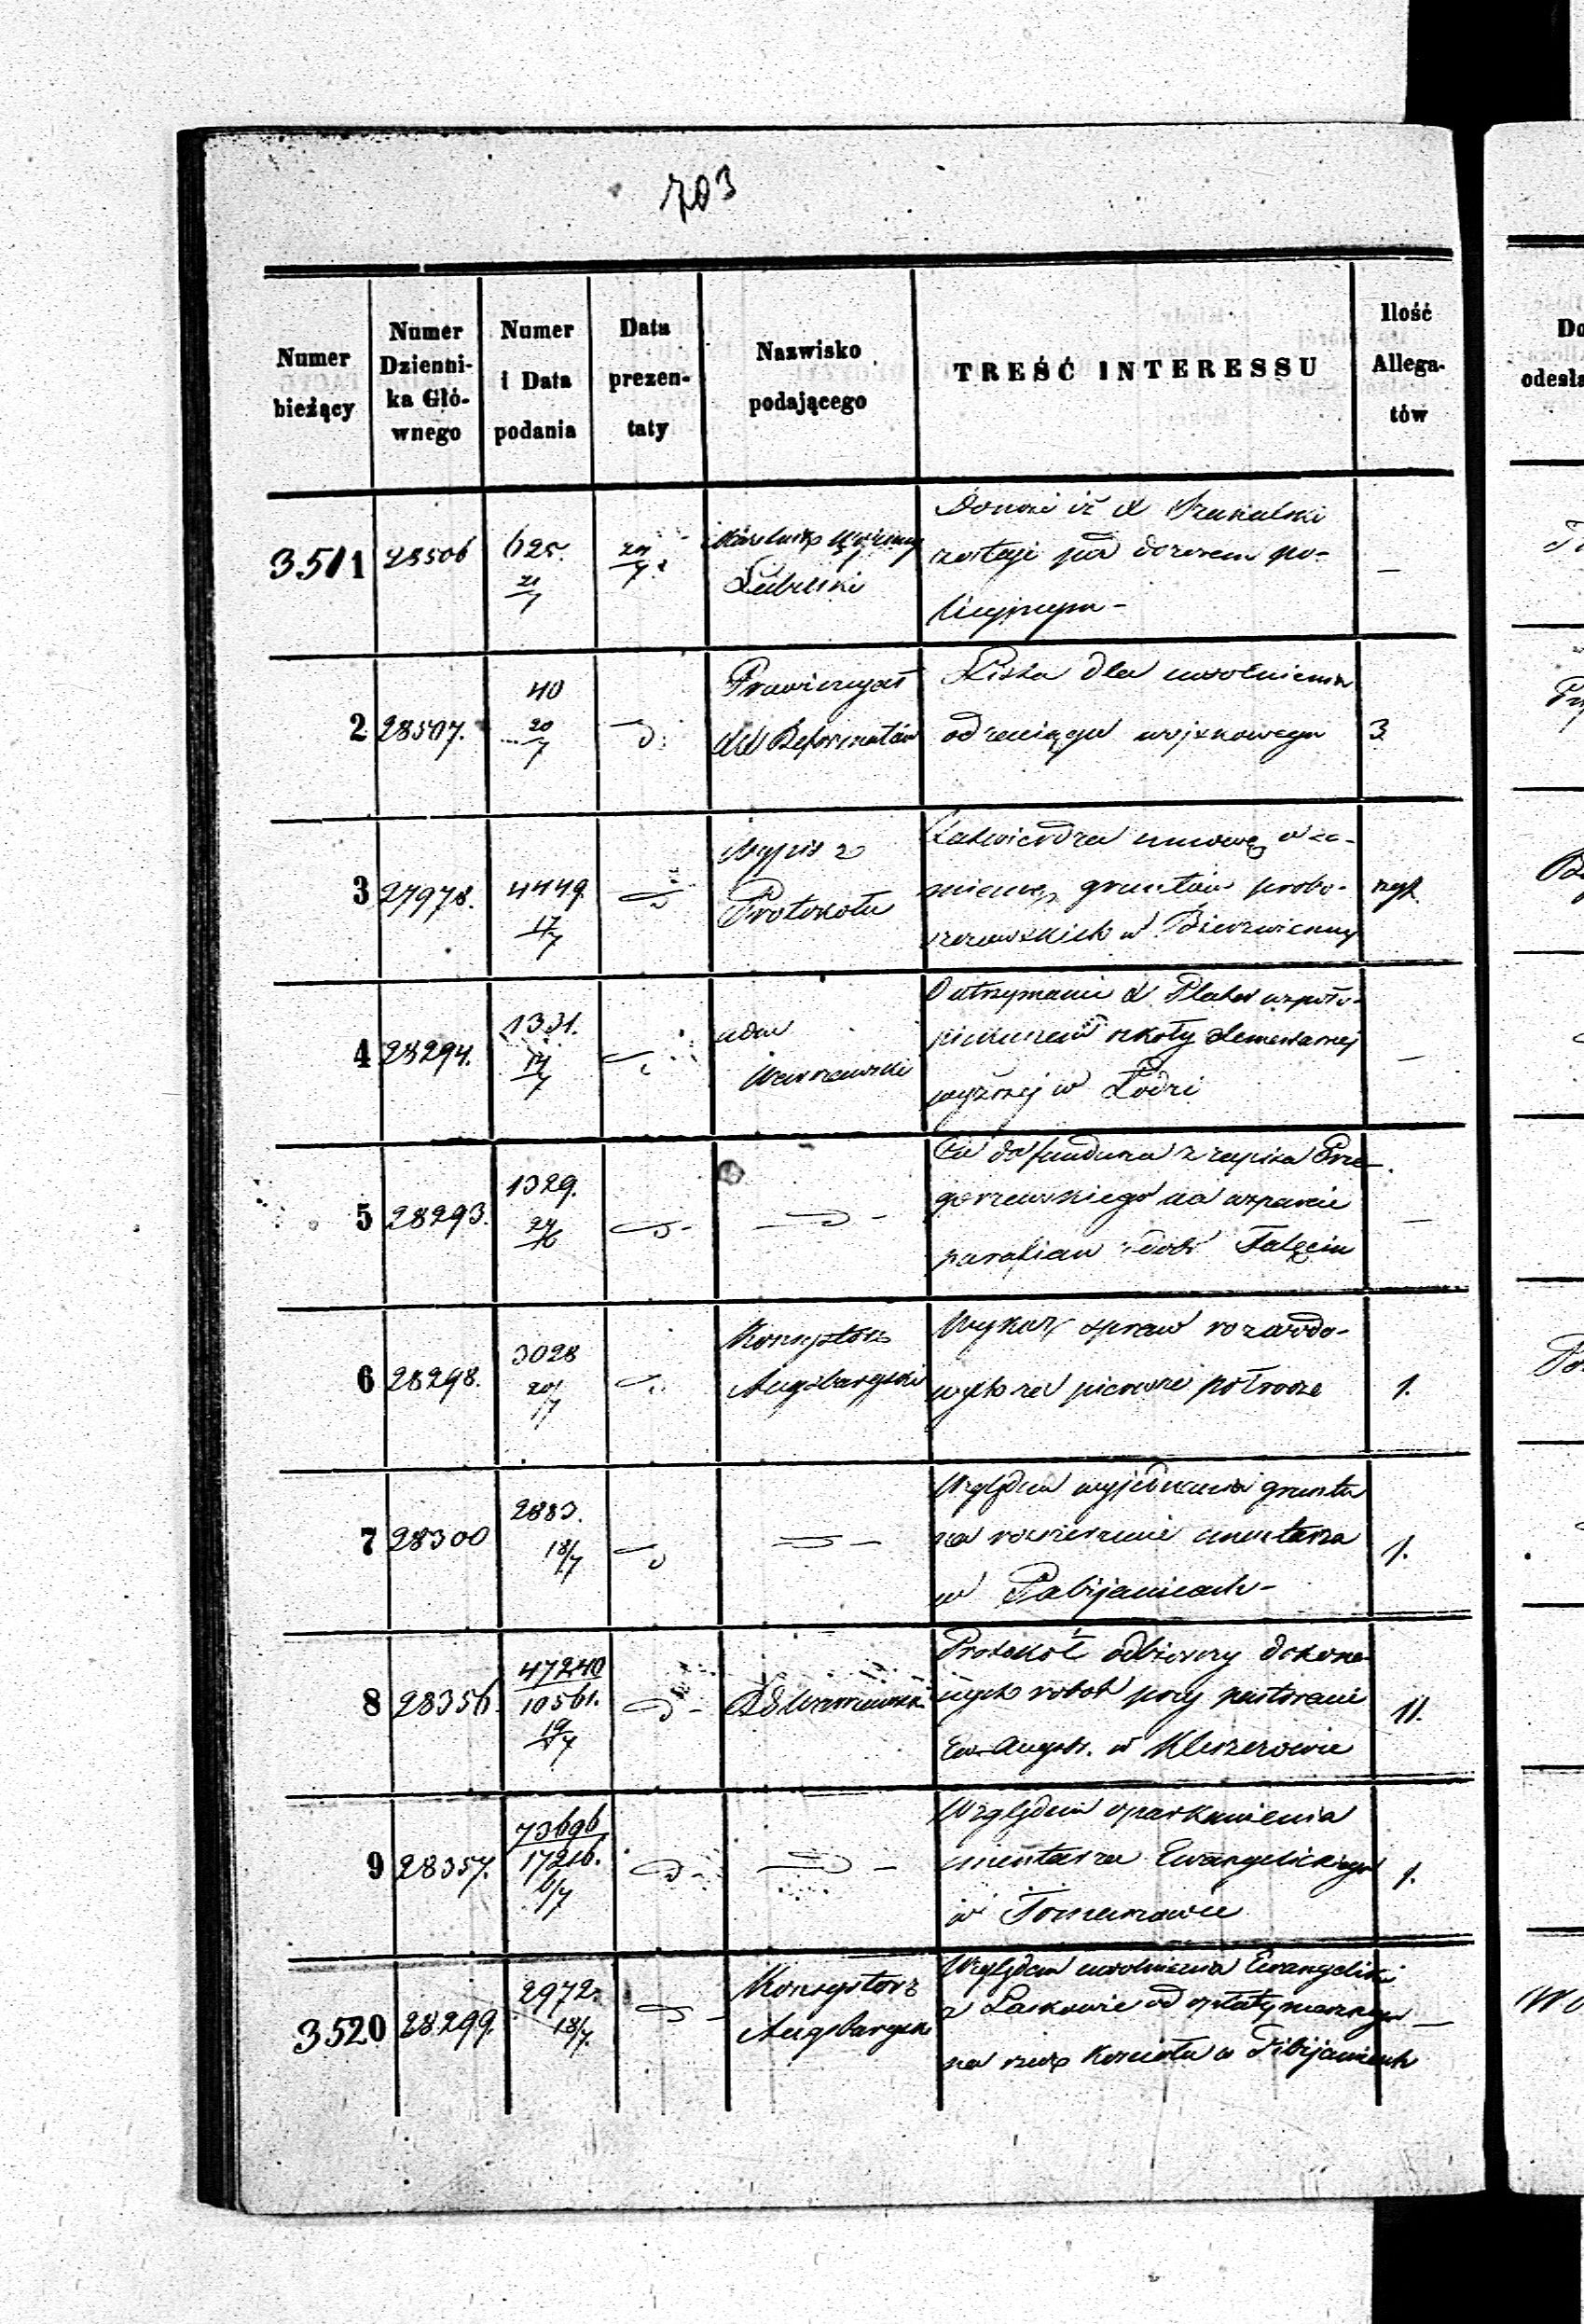 703
Numer bieżący
Numer Dzienni- ka Głó- wnego
Numer i Data podania
Data prezen- taty
Nazwisko podającego
TREŚĆ INTERESSU
Ilość Allega- tów
3511 28506 625. 21/7
Lubelski
Donosi iż X
zostaje pod dozorem po-
licyjnym -
2 28507. 40 20/7 d:
Prowincyał
XX Reformatów
Liska dla uwolnienia
od zaciągu wojskowego
3.
3 27978. 4449. 17/7
Wypis z
Protokołu
Zatwierdza umowę o za-
mianę gruntów probo-
szczowskich w Bierzwienny
4 28294. 1331. 14/7
Warszawski
O utrzymanie X
szkoły elementarnej
wyższej w Łodzi
—
5 28293. 1329.
Co do funduszu z zapisu
na wsparcie
parafian dóbr
—
6 28298. 3028 20/7
Konsystorz
Augsburgski
Wykaz spraw rozwodo-
wych za pierwsze półrocze
1.
7 28300 2883. 18/7
Względem wyjednania gruntu
na rozszerzenie cmentarza
w Pabijanicach -
1.
8 28356. 47240 10561. 19/7
RG Warszawski
Protokół odbiorczy dokona-
nych robót przy pastoracie
Ew. Augsb. w Kleszczowie
11.
9 28357. 73696 17216. 6/7
Względem oparkanienia
cmentarza Ewangelickiego
w Tomaszowie
1.
3520 28299. 2972. 18/7.
Konsystorz
Augsburgski
Względem uwolnienia Ewangelików
z Laskowic od opłaty
na rzecz Kościoła w Pabijanicach
—